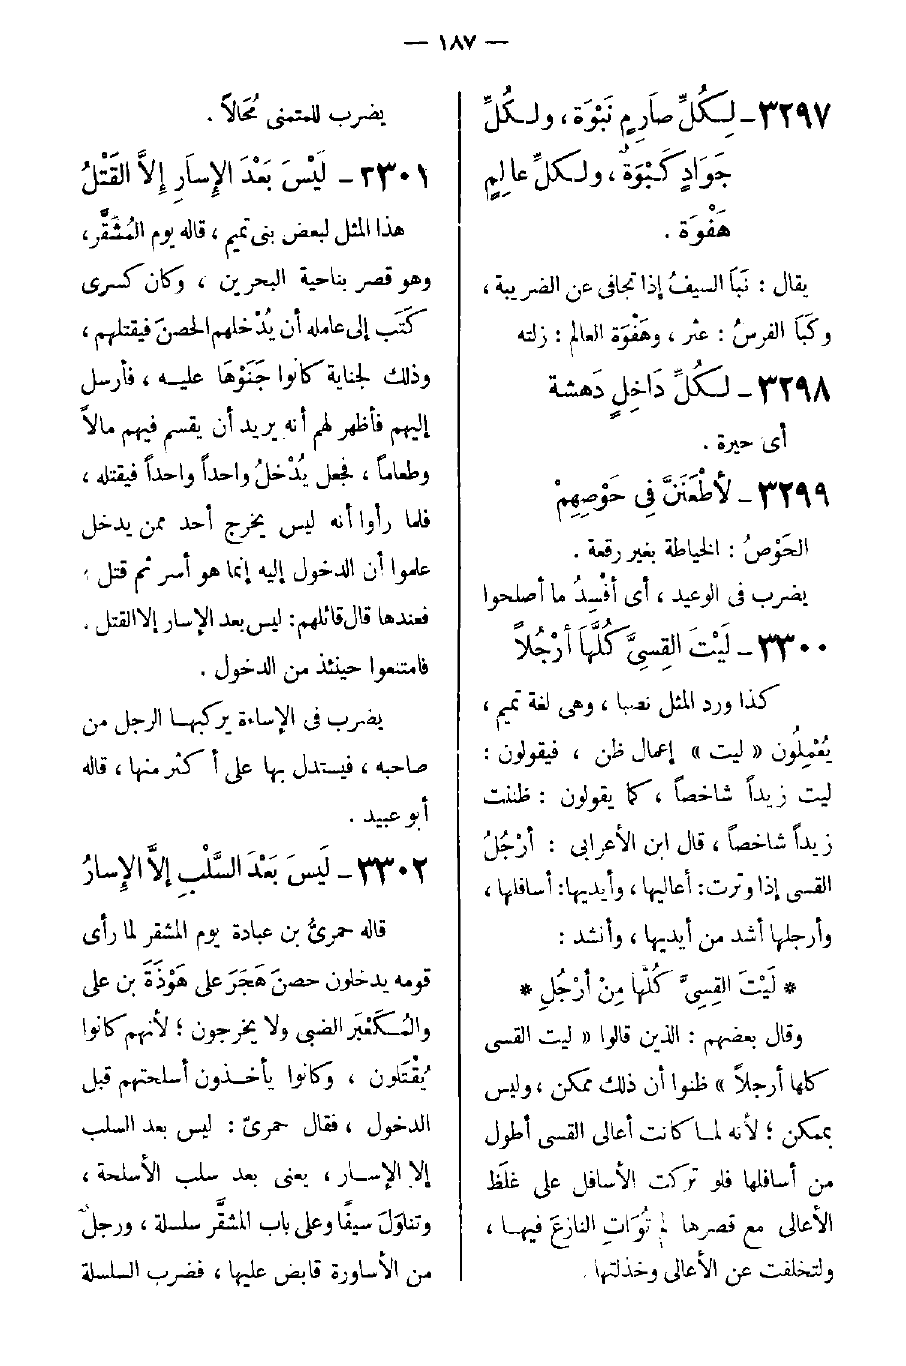 — ١٨٧ —
٣٢٩٧ـ لِكُلِّ صَارِمٍ نَبْوَة، ولكلِّ
جَوَادٍ كَبْوَةٌ، ولكلِّ عالِمٍ
هَفْوَة .
يقال : نَبَا السيفُ إذا تجافى عن الضريبة ،
وكَبَا الفرسُ : عثر ، وهَفْوَة العالم : زلته
٣٢٩٨ـ لِكُلِّ دَاخِلٍ دَهشة
أى حيرة .
٣٢٩٩ـ لأَطْعَنَنَّ فِى حَوْصِهِمْ
الحَوْصُ : الخياطة بغير رقعة .
يضرب فى الوعيد ، أى أفْسِدُ ما أصلحوا
٣٣٠٠ـ لَيْتَ القِسِىَّ كُلَّهَا أرْجُلاً
كذا ورد المثل نصبا ، وهى لغة تميم ،
يُعْمِلُون « ليت » إعمال ظن ، فيقولون :
ليت زيداً شاخصاً ، كما يقولون : ظننت
زيداً شاخصاً ، قال ابن الأعرابى : أرْجُلُ
القسى إذا وترت: أعاليها ، وأيديها: أسافلها ،
وأرجلها أشد من أيديها ، وأنشد :
* لَيْتَ القِسِىَّ كُلَّهَا مِنْ أرْجُلِ *
وقال بعضهم : الذين قالوا « ليت القسى
كلها أرجلاً » ظنوا أن ذلك ممكن ، وليس
بممكن ؛ لأنه لما كانت أعالى القسى أطول
من أسافلها فلو تركت الأسافل على غلَظ
الأعالى مع قصرها لم تُوَاتِ النازعَ فيها ،
ولتخلفت عن الأعالى وخذلتها .
يضرب للمتمنى مُحَالاً .
٣٣٠١ ـ لَيْسَ بَعْدَ الإسَارِ إلاَّ القَتْلُ
هذا المثل لبعض بنى تميم ، قاله يوم المُشَقَّر،
وهو قصر بناحية البحرين ، وكان كسرى
كَتَب إلى عامله أن يُدْخلهم الحصنَ فيقتلهم ،
وذلك لجناية كانوا جَنَوْهَا عليه ، فأرسل
إليهم فأظهر لهم أنه يريد أن يقسم فيهم مالاً
وطعاماً ، فجعل يُدْخلُ واحداً واحداً فيقتله ،
فلما رأوا أنه ليس يخرج أحد ممن يدخل
علموا أن الدخول إليه إنما هو أسر ثم قتل ،
فعندها قال قائلهم: ليس بعد الإسار إلا القتل .
فامتنعوا حينئذ من الدخول .
يضرب فى الإساءة يركبها الرجل من
صاحبه ، فيستدل بها على أكثر منها ، قاله
أبو عبيد .
٣٣٠٢ـ لَيسَ بَعْدَ السَّلْبِ إلاَّ الإسارُ
قاله حمرىُّ بن عبادة يوم المشقر لما رأى
قومه يدخلون حصنَ هَجَرَ على هَوْذَةَ بن على
والمُكَعْبَر الضبى ولا يخرجون ؛ لأنهم كانوا
يُقْتَلون ، وكانوا يأخذون أسلحتهم قبل
الدخول ، فقال حمرىّ : ليس بعد السلب
إلا الإسار ، يعنى بعد سلب الأسلحة ،
وتناوَلَ سيفًا وعلى باب المشقَّر سلسلة ، ورجلٌ
من الأساورة قابض عليها ، فضرب السلسلة